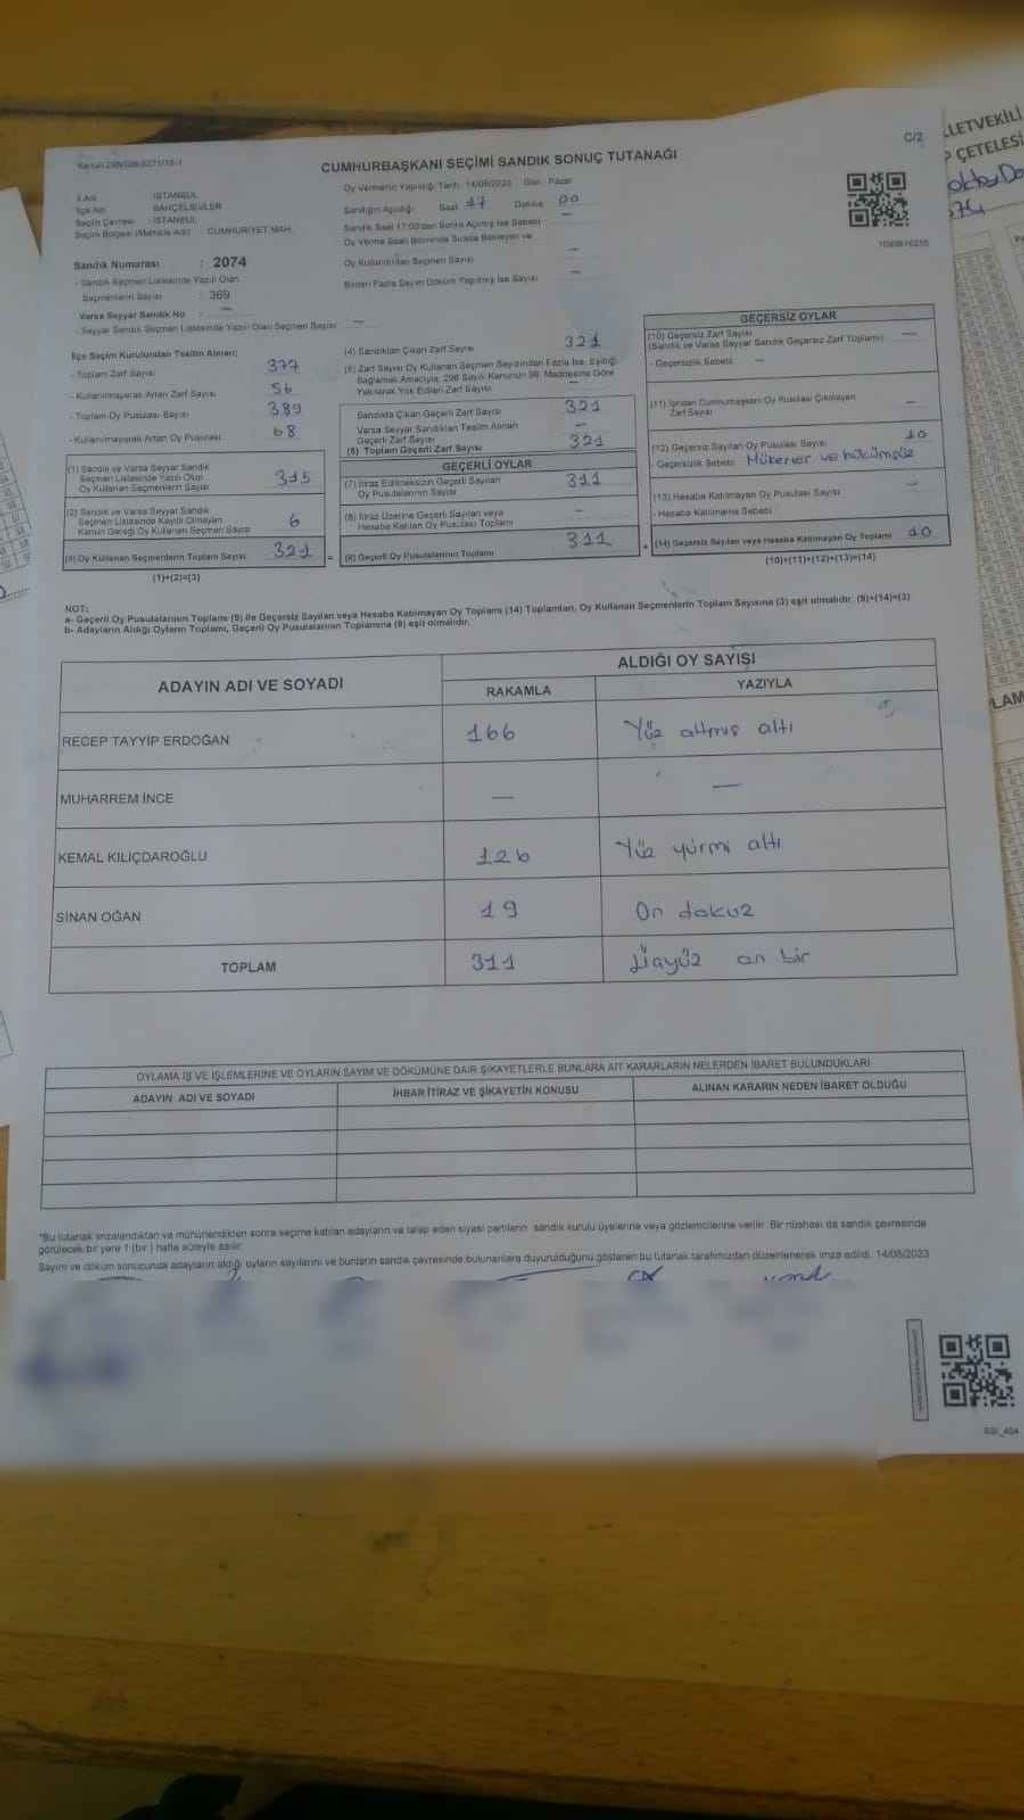 C/2
CUMHURBAŞKANI SEÇİMİ SANDIK SONUÇ TUTANAĞI
LETVEKİLİ
ÇETELESİ
İli Adı : İSTANBUL
İlçe Adı : BAHÇELİEVLER
Seçim Çevresi : İSTANBUL
Seçim Bölgesi (Mahalle Adı) : CUMHURİYET MAH.
Oy Vermenin Yapıldığı Tarih: 14/05/2023 Gün: Pazar
Sandığın Açıldığı: Saat 17 Dakika 00
Sandık Saat 17:00'den Sonra Açılmış İse Sebebi : —
Oy Verme Saati Bitiminde Sırada Bekleyen ve
Oy Kullandırılan Seçmen Sayısı —
Birden Fazla Sayım Döküm Yapılmış İse Sayısı —
Sandık Numarası : 2074
- Sandık Seçmen Listesinde Yazılı Olan
Seçmenlerin Sayısı : 369
Varsa Seyyar Sandık No : —
- Seyyar Sandık Seçmen Listesinde Yazılı Olan Seçmen Sayısı —
İlçe Seçim Kurulundan Teslim Alınan;
- Toplam Zarf Sayısı 377
- Kullanılmayarak Artan Zarf Sayısı 56
- Toplam Oy Pusulası Sayısı 389
- Kullanılmayarak Artan Oy Pusulası 68
(1) Sandık ve Varsa Seyyar Sandık
Seçmen Listesinde Yazılı Olup
Oy Kullanan Seçmenlerin Sayısı 315
(2) Sandık ve Varsa Seyyar Sandık
Seçmen Listesinde Kayıtlı Olmayan
Kanun Gereği Oy Kullanan Seçmen Sayısı 6
(3) Oy Kullanan Seçmenlerin Toplam Sayısı 321
(1)+(2)=(3)
(4) Sandıktan Çıkan Zarf Sayısı 321
(5) Zarf Sayısı Oy Kullanan Seçmen Sayısından Fazla İse, Eşitliği
Sağlamak Amacıyla, 298 Sayılı Kanunun 98. Maddesine Göre
Yakılarak Yok Edilen Zarf Sayısı —
Sandıkta Çıkan Geçerli Zarf Sayısı 321
Varsa Seyyar Sandıktan Teslim Alınan
Geçerli Zarf Sayısı —
(6) Toplam Geçerli Zarf Sayısı 321
GEÇERLİ OYLAR
(7) İtiraz Edilmeksizin Geçerli Sayılan
Oy Pusulalarının Sayısı 311
(8) İtiraz Üzerine Geçerli Sayılan veya
Hesaba Katılan Oy Pusulası Toplamı —
(9) Geçerli Oy Pusulalarının Toplamı 311
GEÇERSİZ OYLAR
(10) Geçersiz Zarf Sayısı —
(Sandık ve Varsa Seyyar Sandık Geçersiz Zarf Toplamı)
- Geçersizlik Sebebi: —
(11) İçinden Cumhurbaşkanı Oy Pusulası Çıkmayan
Zarf Sayısı —
(12) Geçersiz Sayılan Oy Pusulası Sayısı 10
- Geçersizlik Sebebi:
(13) Hesaba Katılmayan Oy Pusulası Sayısı —
- Hesaba Katılmama Sebebi
(14) Geçersiz Sayılan veya Hesaba Katılmayan Oy Toplamı 10
(10)+(11)+(12)+(13)=(14)
NOT:
a- Geçerli Oy Pusulalarının Toplamı (9) ile Geçersiz Sayılan veya Hesaba Katılmayan Oy Toplamı (14) Toplamları, Oy Kullanan Seçmenlerin Toplam Sayısına (3) eşit olmalıdır. (9)+(14)=(3)
b- Adayların Aldığı Oyların Toplamı, Geçerli Oy Pusulalarının Toplamına (9) eşit olmalıdır.
ADAYIN ADI VE SOYADI
ALDIĞI OY SAYISI
RAKAMLA YAZIYLA
RECEP TAYYİP ERDOĞAN 166 Yüz altmış altı
MUHARREM İNCE — —
KEMAL KILIÇDAROĞLU 126 Yüz yirmi altı
SİNAN OĞAN 19 On dokuz
TOPLAM 311 Üçyüz on bir
OYLAMA İŞ VE İŞLEMLERİNE VE OYLARIN SAYIM VE DÖKÜMÜNE DAİR ŞİKAYETLERLE BUNLARA AİT KARARLARIN NELERDEN İBARET BULUNDUKLARI
ADAYIN ADI VE SOYADI İHBAR İTİRAZ VE ŞİKAYETİN KONUSU ALINAN KARARIN NEDEN İBARET OLDUĞU
*Bu tutanak imzalandıktan ve mühürlendikten sonra seçime katılan adayların ve talep eden siyasi partilerin sandık kurulu üyelerine veya gözlemcilerine verilir. Bir nüshası da sandık çevresinde
görülecek bir yere 1 (bir) hafta süreyle asılır.
Sayım ve döküm sonucunda adayların aldığı oyların sayılarını ve bunların sandık çevresinde bulunanlara duyurulduğunu gösteren bu tutanak tarafımızdan düzenlenerek imza edildi. 14/05/2023